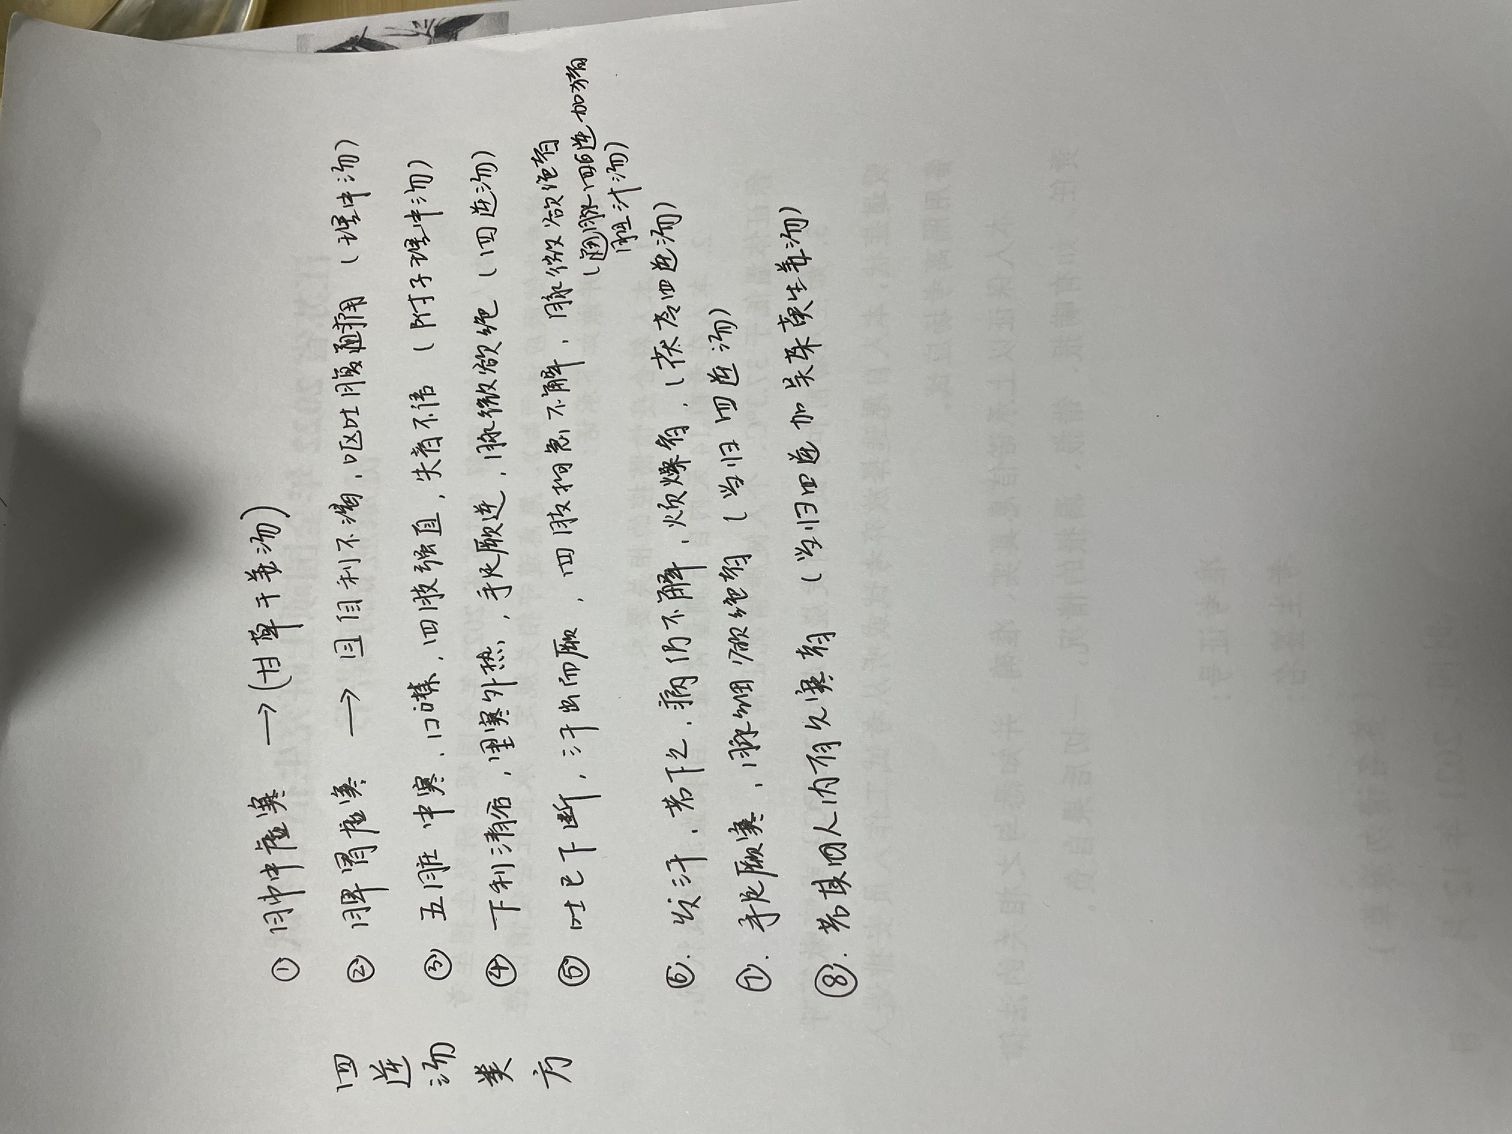 四逆汤类方
① 肺中虚寒 → (甘草干姜汤)
② 脾胃虚寒 → 自利不渴,呕吐腹痛 (理中汤)
③ 五脏中寒,口噤,四肢强直,失音不语 (附子理中汤)
④ 下利清谷,里寒外热,手足厥逆,脉微欲绝 (四逆汤)
⑤ 吐已下断,汗出而厥,四肢拘急不解,脉微欲绝者
(通脉四逆加猪
胆汁汤)
⑥. 发汗,若下之,病仍不解,烦燥者,(茯苓四逆汤)
⑦. 手足厥寒,脉细欲绝者 (当归四逆汤)
⑧. 若其人内有久寒者 (当归四逆加吴茱萸生姜汤)